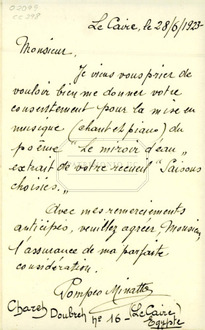 Le Caire, le 28/6/1923
Monsieur.
Je viens vous prier de
vouloir bien me donner votre
consentement pour la mise en
musique (chant et piano) du
poème "Le miroir d'eau"
extrait de votre recueil "Saisons
choisies."
Avec mes remerciements
anticipés, veuillez agréer Monsieur
l'assurance de ma parfaite
considération.
Pompeo
Chareh Doubreh nº 16 (Le Caire)
Egypte